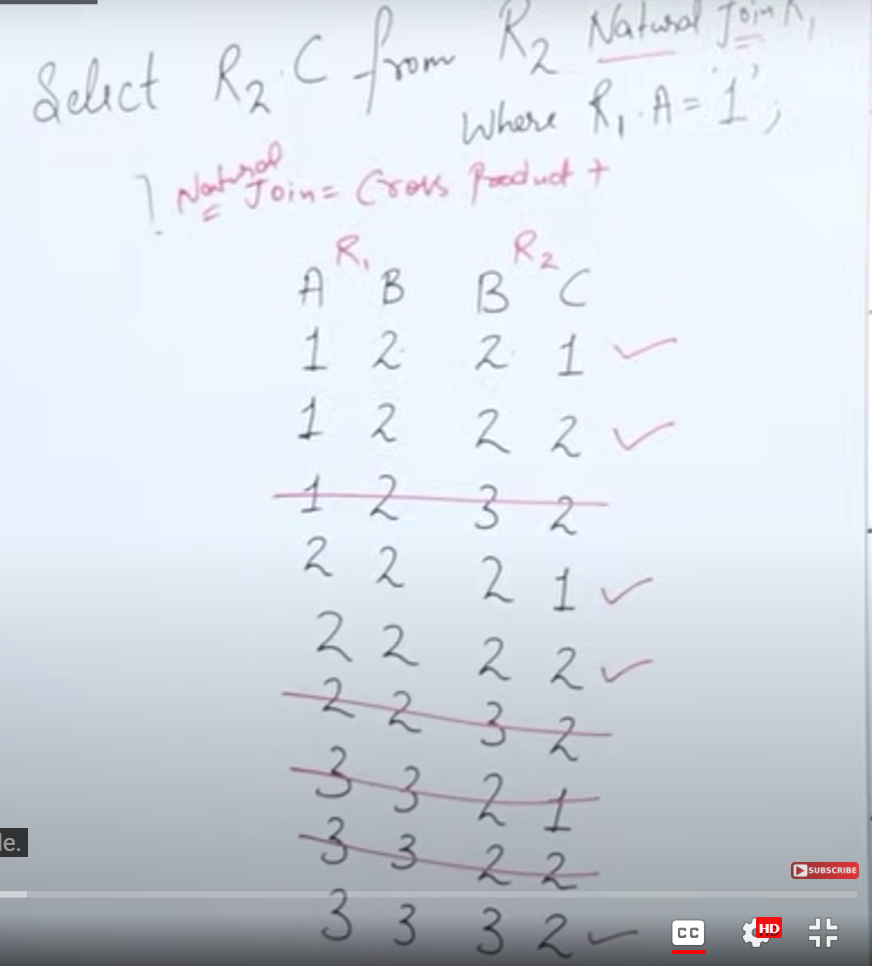 Select R₂.C from R₂ Natural Join R₁
Where R₁.A = '1';
Natural Join = Cross Product +
R₁ R₂
A B B C
1 2 2 1 ✓
1 2 2 2 ✓
1 2 3 2
2 2 2 1 ✓
2 2 2 2 ✓
2 2 3 2
3 3 2 1
3 3 2 2
3 3 3 2 ✓
le.
SUBSCRIBE
CC HD